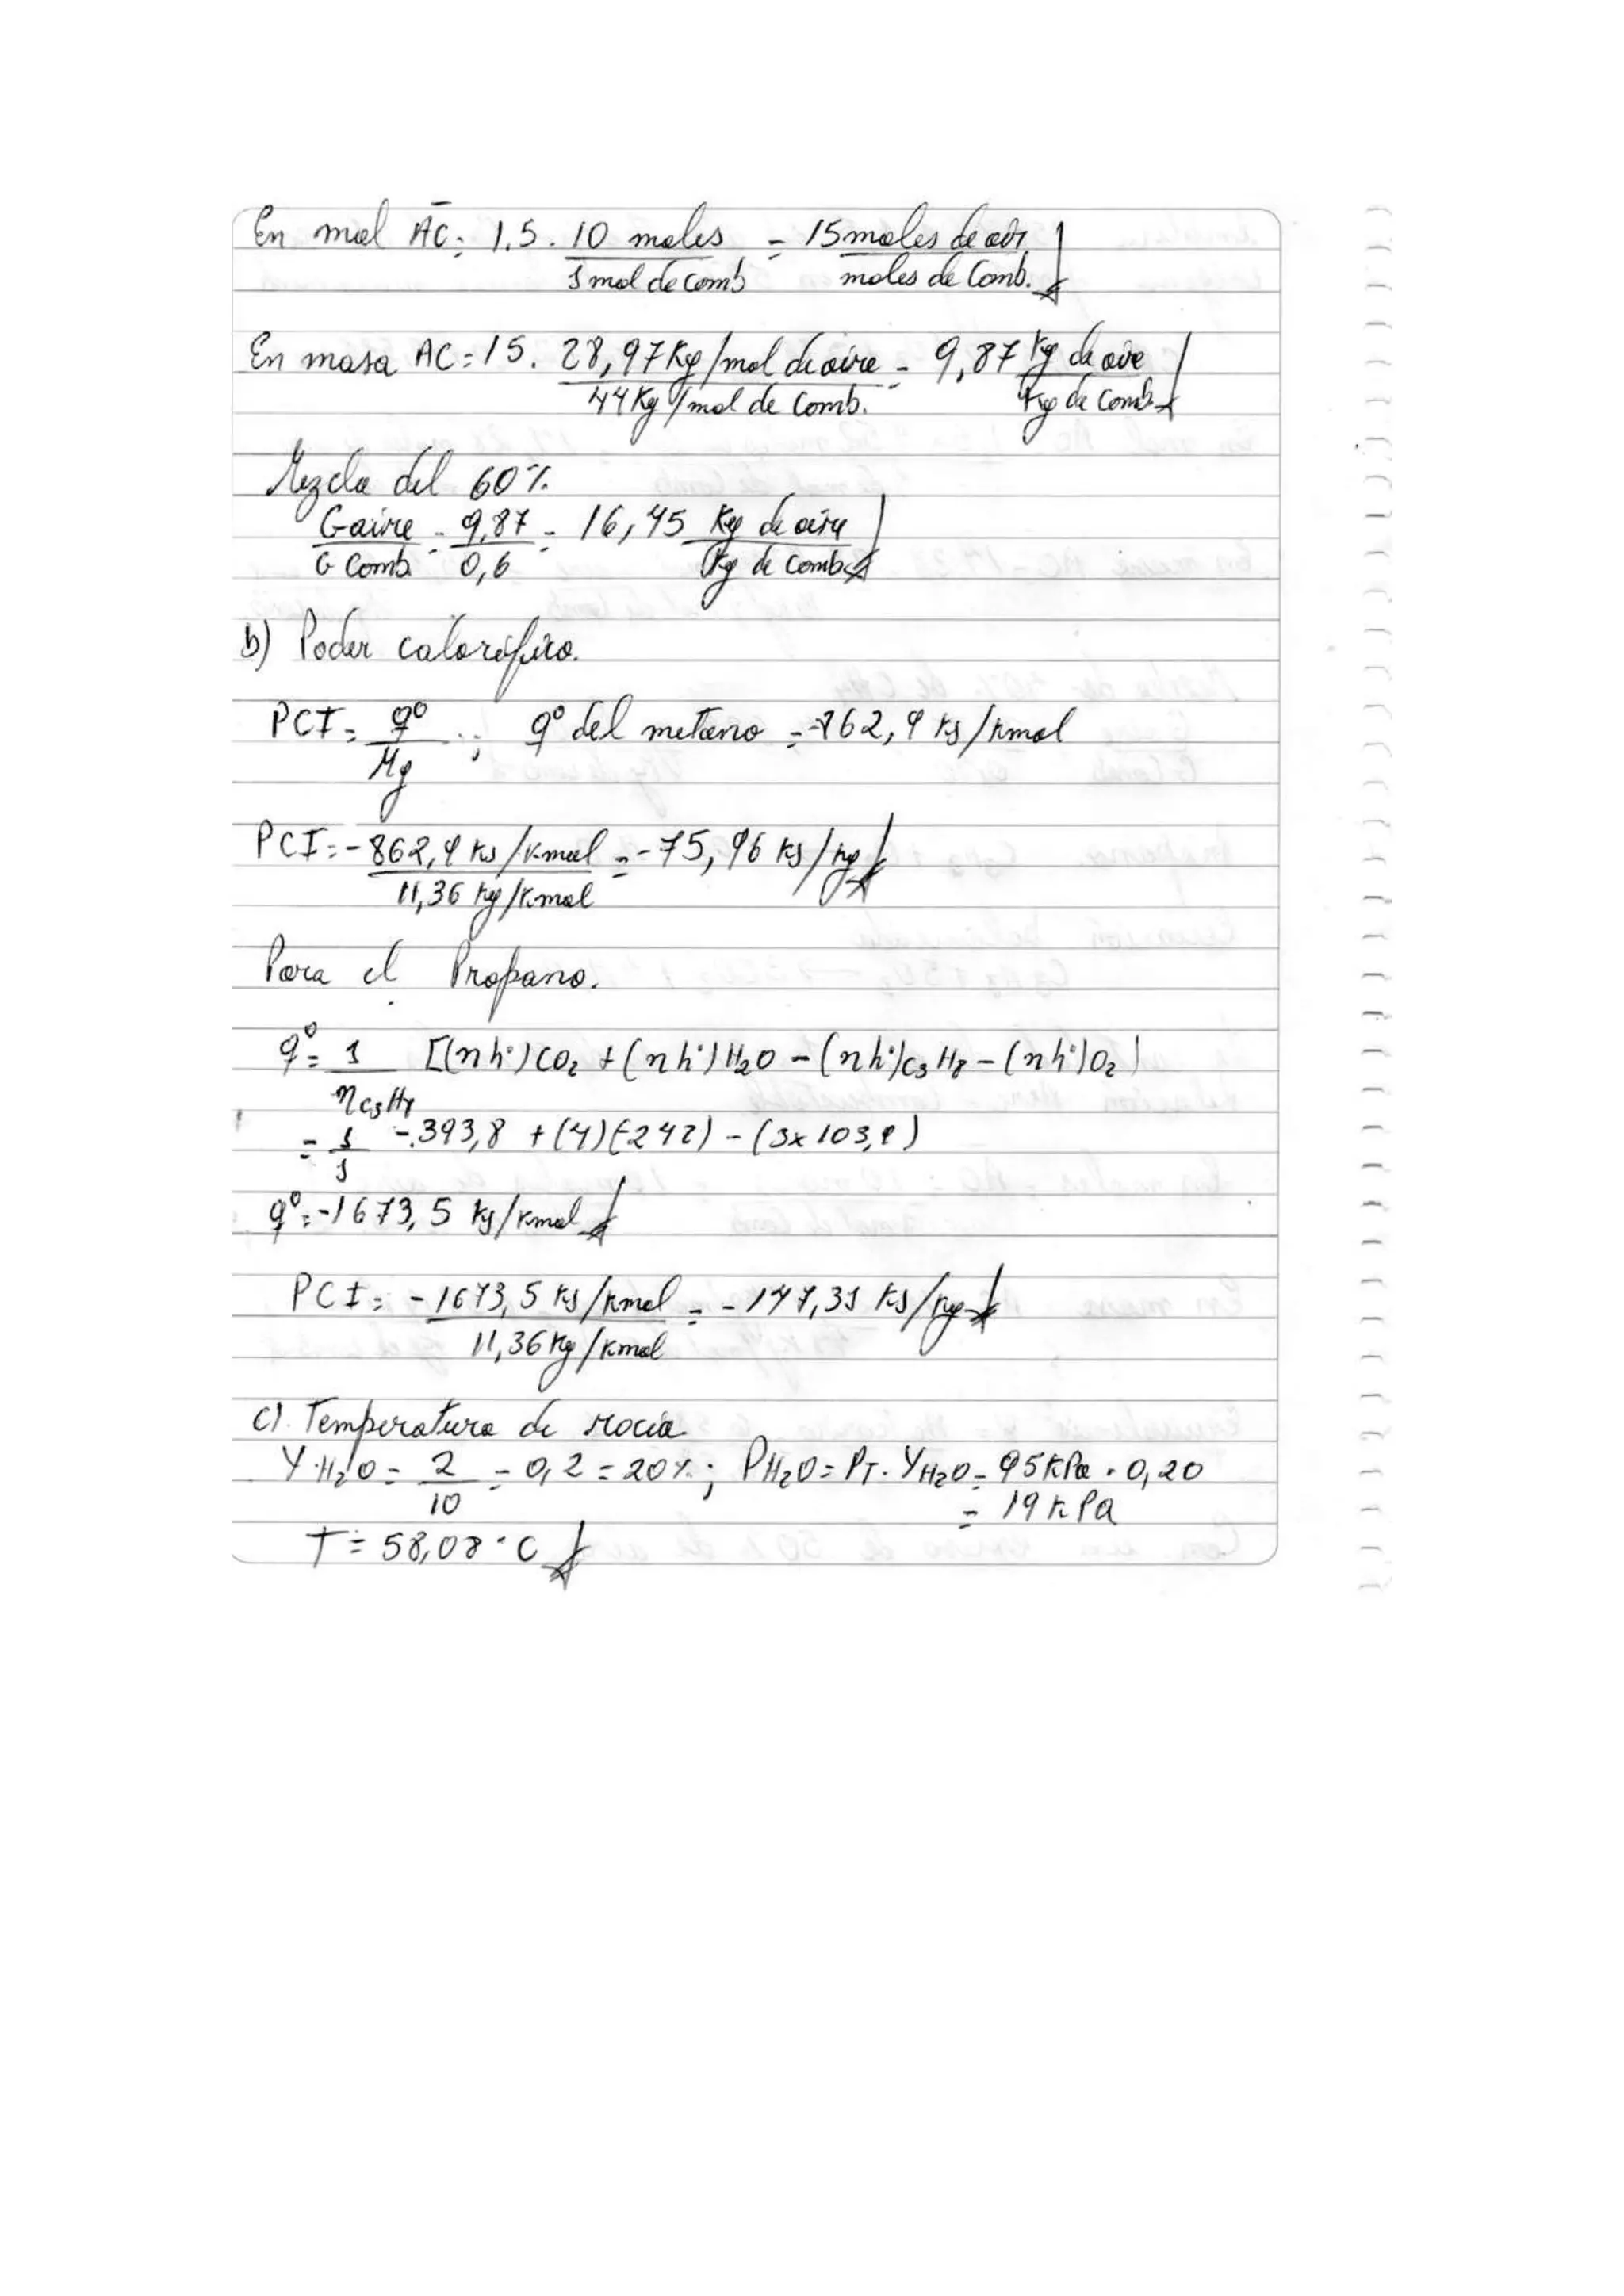 En mol AC̄: 1.5 . 10 moles / 1 mol de comb = 15 moles de air / moles de Comb.
En masa AC = 15 . 28,97 Kg/mol de aire / 44 Kg/mol de Comb. = 9,87 Kg de aire / Kg de Comb
Mezcla del 60%.
G aire / G Comb. = 9,87 / 0,6 = 16,45 Kg de aire / Kg de Comb
b) Poder calorífico.
PCI = q° / Mg ; q° del metano = -862,9 KJ/Kmol
PCI = -862,9 KJ/Kmol / 11,36 Kg/Kmol = -75,96 KJ/Kg
Para el Propano.
q° = 1 / nC3H8 [(n h°)CO2 + (n h°)H2O - (n h°)C3H8 - (n h°)O2]
= 1/1 -393,8 + (4)(-242) - (3x103,9)
q° = -1673,5 KJ/Kmol
PCI = -1673,5 KJ/Kmol / 11,36 Kg/Kmol = -147,31 KJ/Kg
c). Temperatura de rocío
Y H2O = 2 / 10 = 0,2 = 20%; PH2O = PT . YH2O = 95 KPa . 0,20
= 19 KPa
T = 58,08 °C